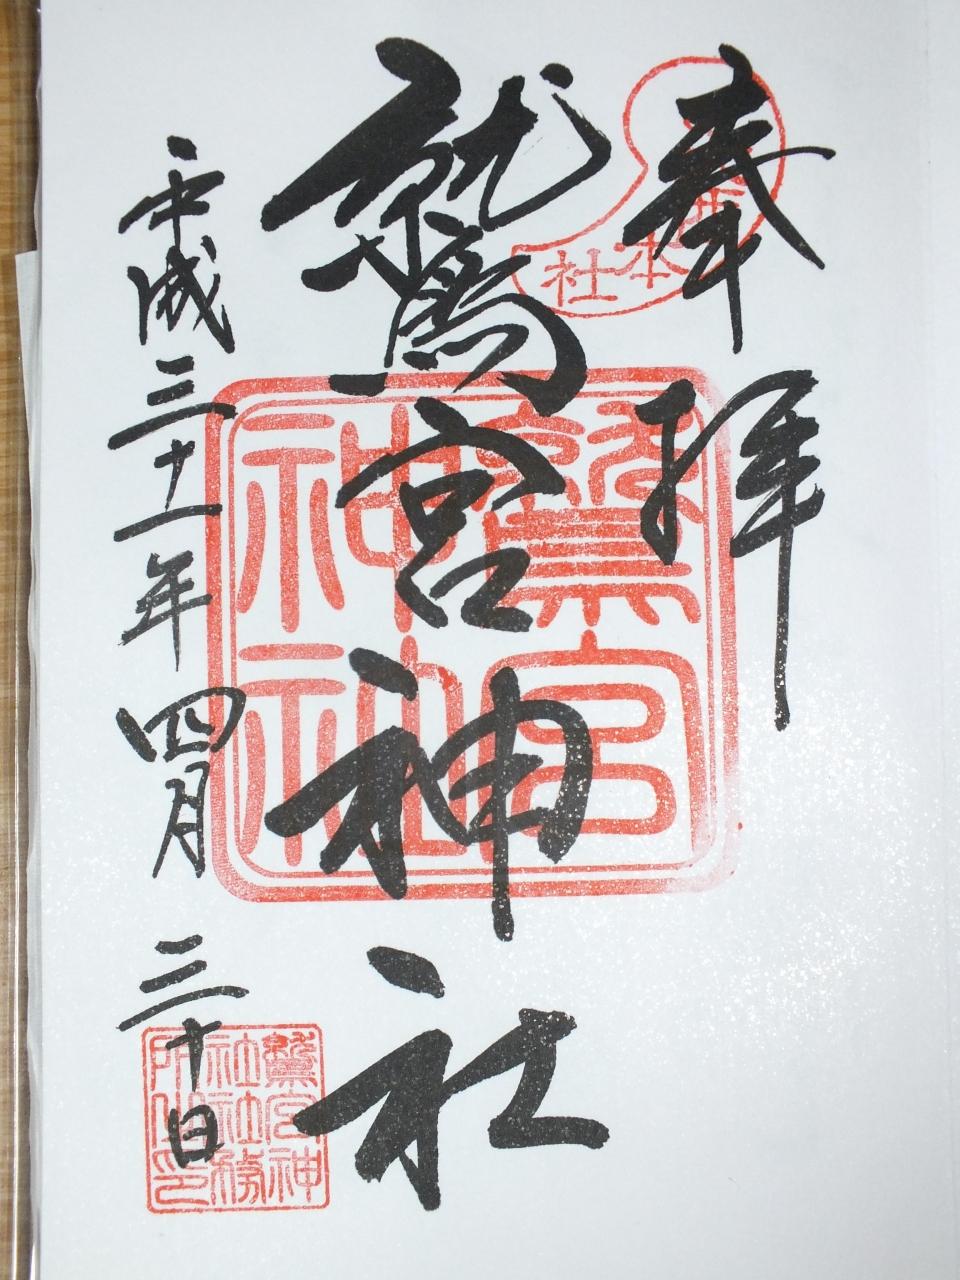 奉拝
本社
鷲宮神社
鷲宮神社
平成三十一年四月三十日
鷲宮神
社社務
所印